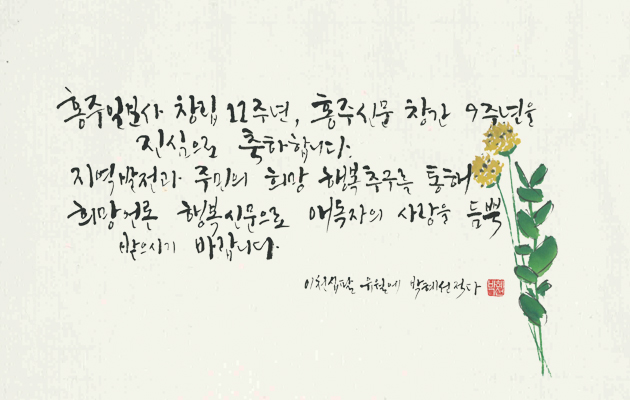 홍주일보사 창립 11주년, 홍주신문 창간 9주년을
진심으로 축하합니다.
지역발전과 주민의 희망 행복추구를 통해
희망언론 행복신문으로 애독자의 사랑을 듬뿍
받으시기 바랍니다.
이천십팔 유월에 박혜선적다